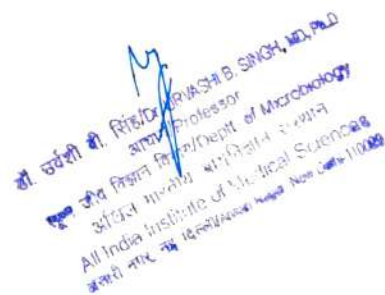 डॉ. उर्वशी बी. सिंह/Dr. URVASHI B. SINGH, MD, PhD
आचार्य/Professor
सूक्ष्म जीव विज्ञान विभाग/Deptt. of Microbiology
अखिल भारतीय आयुर्विज्ञान संस्थान
All India Institute of Medical Sciences
अंसारी नगर, नई दिल्ली/Ansari Nagar, New Delhi-110029